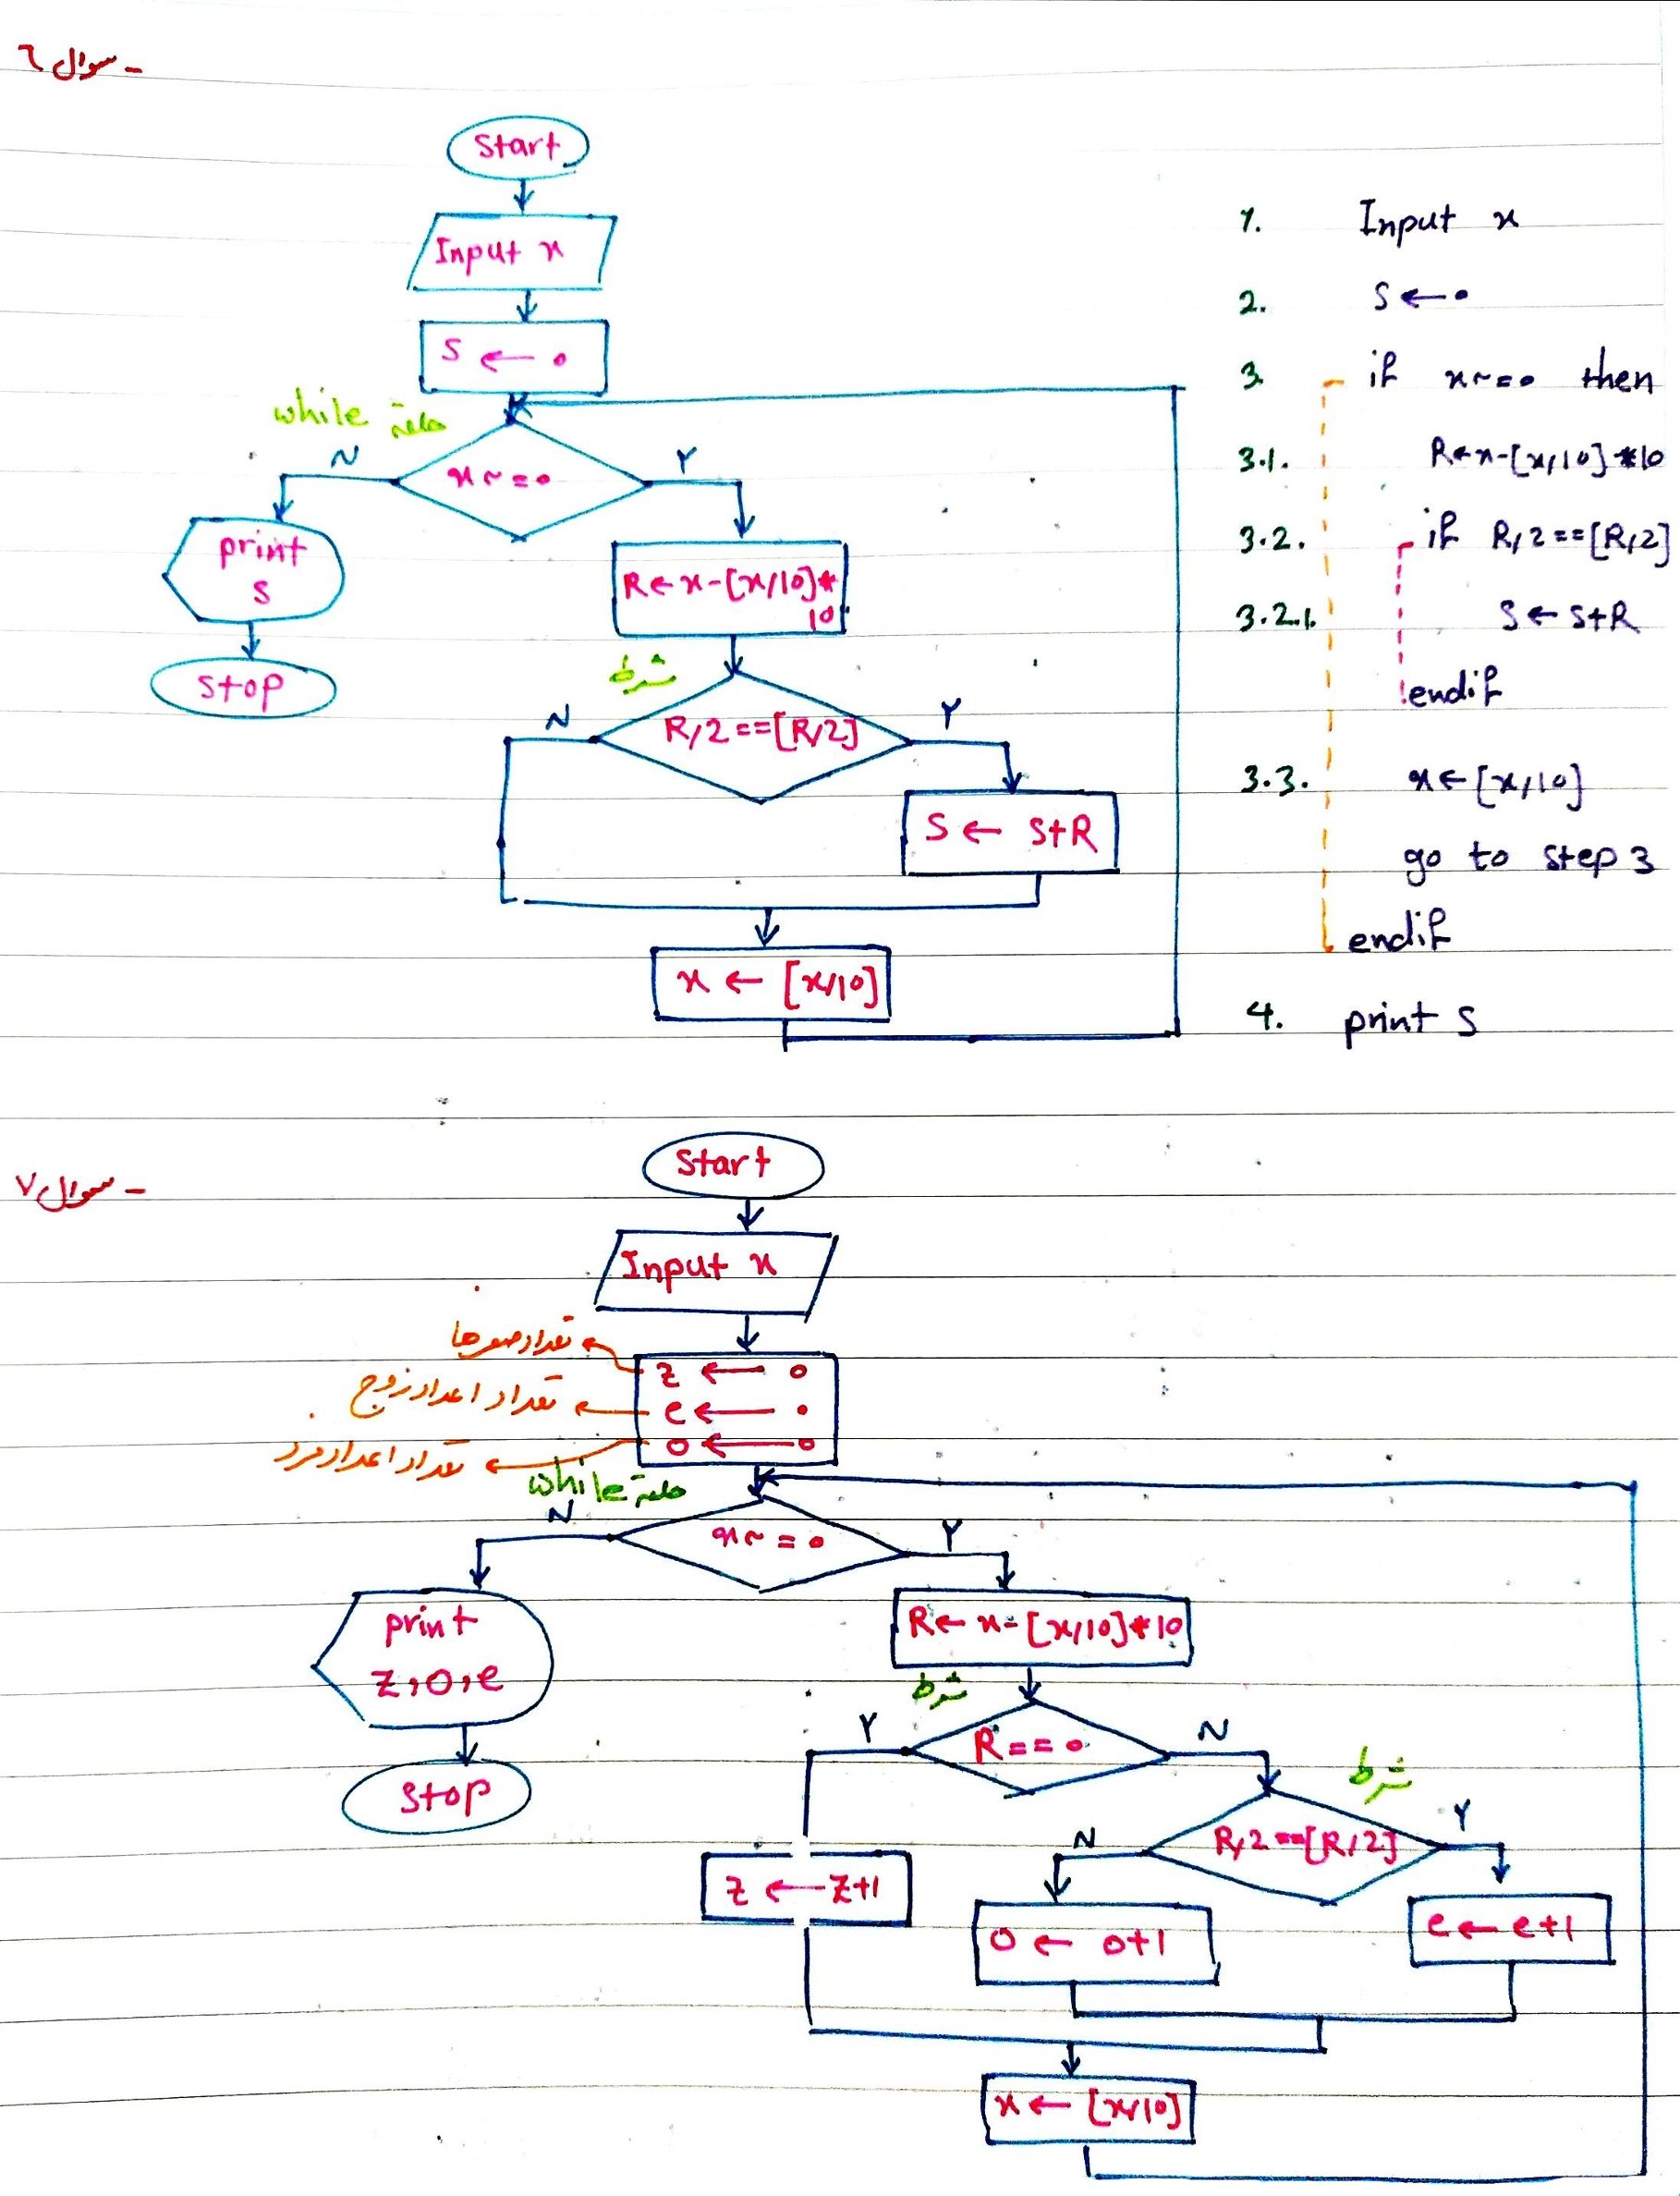 - سوال ٦
Start
Input x
S ← 0
while حلقة
x ~= 0
N
Y
print
S
stop
R ← x - [x/10] *
10
شرط
R/2 == [R/2]
N
Y
S ← S+R
x ← [x/10]
1. Input x
2. S ← 0
3. if x ~= 0 then
3.1. R ← x - [x/10] * 10
3.2. if R/2 == [R/2]
3.2.1. S ← S+R
endif
3.3. x ← [x/10]
go to step 3
endif
4. print S
- سوال ٧
Start
Input x
تعداد صفرها
z ← 0
تعداد اعداد زوج
e ← 0
تعداد اعداد فرد
o ← 0
while حلقة
x ~= 0
N
Y
print
z, o, e
stop
R ← x - [x/10] * 10
شرط
R == 0
Y
N
شرط
R/2 == [R/2]
N
Y
z ← z+1
o ← o+1
e ← e+1
x ← [x/10]